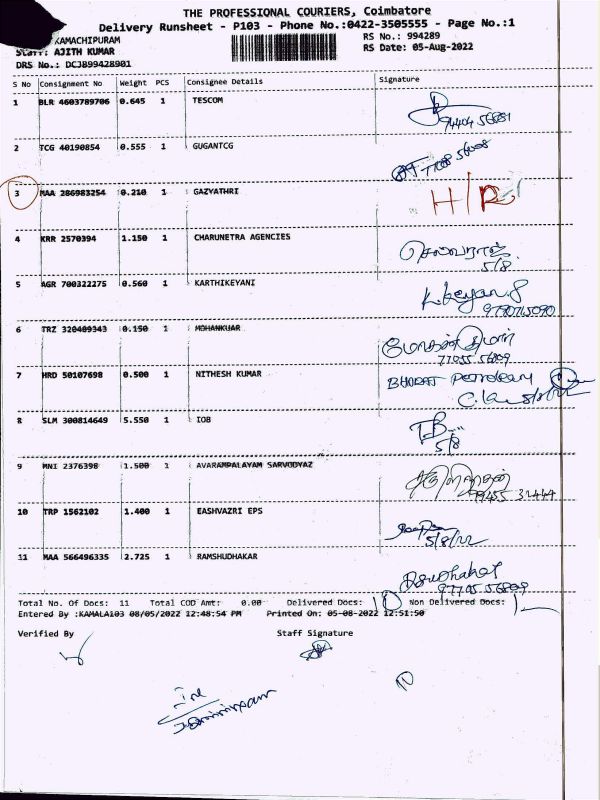 THE PROFESSIONAL COURIERS, Coimbatore
Delivery Runsheet - P103 - Phone No.:0422-3505555 - Page No.:1
KAMACHIPURAM RS No.: 994289
Staff: AJITH KUMAR RS Date: 05-Aug-2022
DRS No.: DCJB99428901
S No Consignment No Weight PCS Consignee Details Signature
1 BLR 4603789706 0.645 1 TESCOM
2 TCG 40190854 0.555 1 GUGANTCG
3 MAA 286983254 0.210 1 GAZYATHRI H/R
4 KRR 2570394 1.150 1 CHARUNETRA AGENCIES செல்வராஜ்
5/8
5 AGR 700322275 0.560 1 KARTHIKEYANI
6 TRZ 320409343 0.150 1 MOHANKUAR
7 HRD 50107698 0.500 1 NITHESH KUMAR BHARAT PETROLEUM
5/8/22
8 SLM 300814649 5.550 1 IOB
5/8
9 MNI 2376398 1.500 1 AVARAMPALAYAM SARVODYAZ
10 TRP 1562102 1.400 1 EASHVAZRI EPS
5/8/22
11 MAA 566496335 2.725 1 RAMSHUDHAKAR
Total No. Of Docs: 11 Total COD Amt: 0.00 Delivered Docs: 10 Non Delivered Docs: 1
Entered By :KAMALA103 08/05/2022 12:48:54 PM Printed On: 05-08-2022 12:51:50
Verified By Staff Signature